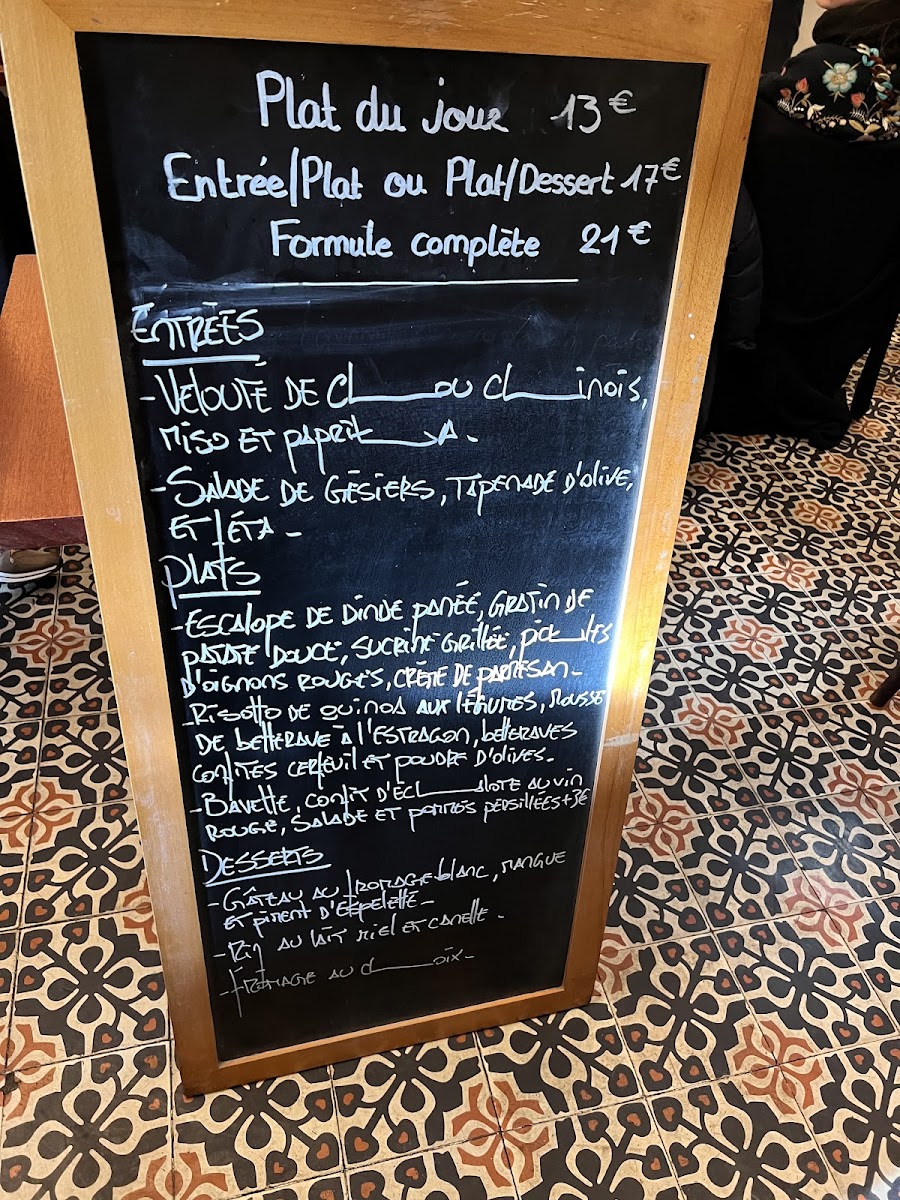 Plat du jour 13€
Entrée/Plat ou Plat/Dessert 17€
Formule complète 21€
ENTRÉES
- VELOUTÉ DE CHOU CHINOIS,
MISO ET PAPRIKA.
- SALADE DE GÉSIERS, TAPENADE D'OLIVE,
ET FÉTA -
PLATS
- ESCALOPE DE DINDE PANÉE, GRATIN DE
PATATE DOUCE, SUCRINE GRILLÉE, PICKLES
D'OIGNONS ROUGES, CRÈME DE PARMESAN -
- RISOTTO DE QUINOA AUX LÉGUMES, MOUSSE
DE BETTERAVE À L'ESTRAGON, BETTERAVES
CONFITES CERFEUIL ET POUDRE D'OLIVES.
- BAVETTE, CONFIT D'ÉCHALOTE AU VIN
ROUGE, SALADE ET POMMES PERSILLÉES +3€
DESSERTS
- GÂTEAU AU FROMAGE BLANC, MANGUE
ET PIMENT D'ESPELETTE -
- RIZ AU LAIT MIEL ET CANELLE -
- FROMAGE AU CHOIX -